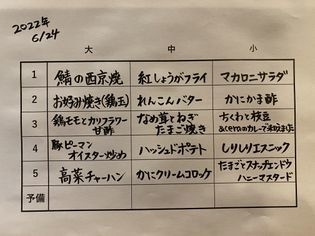 2022年
6/24
大 中 小
1 鯖の西京焼 紅しょうがフライ マカロニサラダ
2 お好み焼き(鶏玉) れんこんバター かにかま酢
3 鶏モモとカリフラワー なめ茸とねぎ ちくわと枝豆
甘酢 たまご焼き のカレーで和えました
4 豚ピーマン ハッシュドポテト しりしりエスニック
オイスター炒め
5 高菜チャーハン かにクリームコロッケ たまごとスナップエンドウ
ハニーマスタード
予備